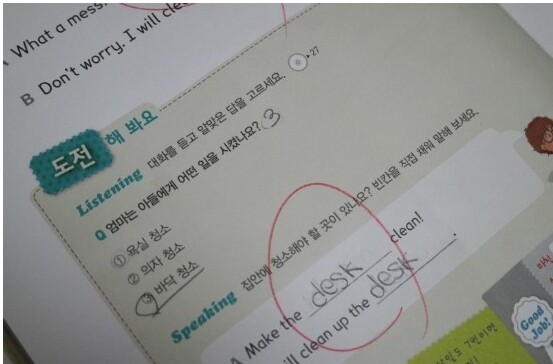 What a mess.
B Don't worry. I will cle
도전 해 봐요
Listening 대화를 듣고 알맞은 답을 고르세요. 27
Q 엄마는 아들에게 어떤 일을 시켰나요? 3
① 욕실 청소
② 의자 청소
③ 바닥 청소
Speaking 집안에 청소해야 할 곳이 있나요? 빈칸을 직접 채워 말해 보세요.
A Make the desk clean!
ll clean up the desk.
Good Job!